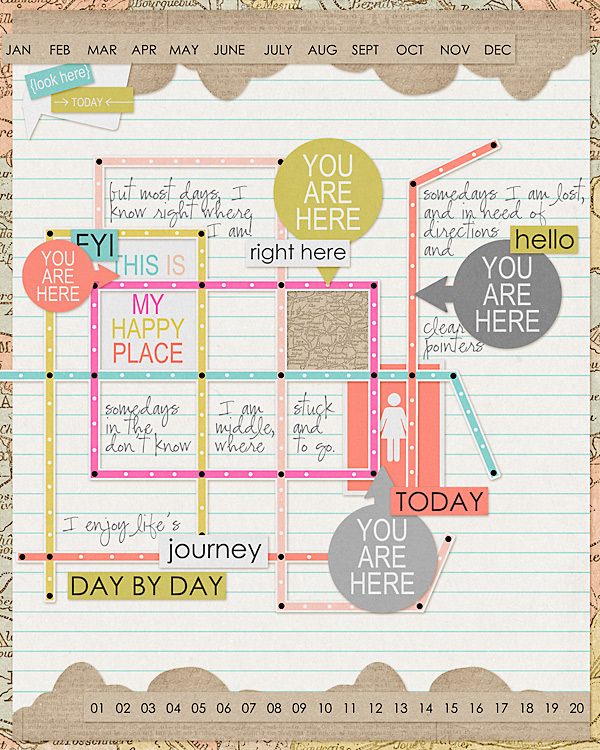 JAN FEB MAR APR MAY JUNE JULY AUG SEPT OCT NOV DEC
{look here}
TODAY
but most days, I
know right where
I am!
YOU
ARE
HERE
right here
somedays I am lost,
and in need of
directions
and
hello
YOU
ARE
HERE
clear
pointers
FYI
YOU
ARE
HERE
THIS IS
MY
HAPPY
PLACE
somedays
in the
don't know
I am
middle,
where
stuck
and
to go.
TODAY
YOU
ARE
HERE
I enjoy life's
journey
DAY BY DAY
01 02 03 04 05 06 07 08 09 10 11 12 13 14 15 16 17 18 19 20